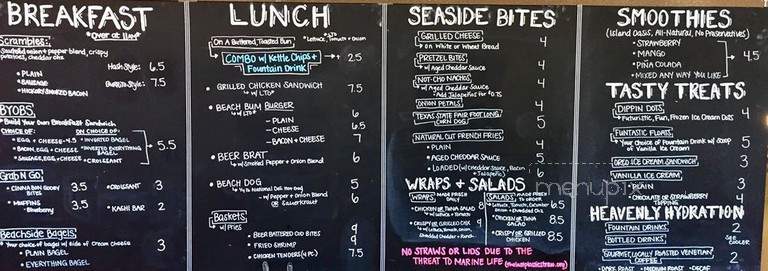 BREAKFAST
*Over at 11am*
Scrambles:
onion + pepper blend, crispy
potatoes, cheddar
- PLAIN
- SAUSAGE
- HICKORY SMOKED BACON
Hash Style: 6.5
Burrito Style: 7.5
BYOBS
Build Your Own Breakfast Sandwich
CHOICE OF:
• EGG + CHEESE - 4.5
• BACON, EGG + CHEESE
• SAUSAGE, EGG + CHEESE
ON CHOICE OF:
• INVERTED BAGEL
• INVERTED EVERYTHING BAGEL
• CROISSANT
5.5
Grab N Go
• CINNABON GOOEY BITES 3.5
• MUFFINS 3.5
- Blueberry
• CROISSANT 3
• KASHI BAR 2
Beachside Bagels
Your choice of bagel w/ side of Cream Cheese 3
- PLAIN BAGEL
- EVERYTHING BAGEL
LUNCH
*LTO
*Lettuce, Tomato + Onion
On A Buttered, Toasted Bun
COMBO w/ Kettle Chips + Fountain Drink 2.5
• GRILLED CHICKEN SANDWICH 7.5
w/ LTO*
• BEACH BUM BURGER
w/ LTO*
- PLAIN 6
- CHEESE 6.5
- BACON + CHEESE 7
• BEER BRAT 6
w/ Sautéed Pepper + Onion Blend
• BEACH DOG 5
1/4 lb National Deli Hot Dog
w/ Pepper + Onion Blend or Sauerkraut 6
Baskets
w/ Fries
• BEER BATTERED COD BITES 9
• FRIED SHRIMP 9
• CHICKEN TENDERS (4 PC.) 7.5
SEASIDE BITES
GRILLED CHEESE 4
on White or Wheat Bread
PRETZEL BITES 4
w/ Aged Cheddar Sauce
NOT-CHO NACHOS 4
w/ Aged Cheddar Sauce
- Add Jalapeños for $0.75
ONION PETALS 4
TEXAS STATE FAIR FOOT LONG CORN DOG 5
NATURAL CUT FRENCH FRIES
- PLAIN 4
- AGED CHEDDAR SAUCE 5
- LOADED (w/ Cheddar Sauce, Bacon + Jalapeño) 6
WRAPS + SALADS
WRAPS: MADE FRESH DAILY
• CHICKEN OR TUNA SALAD
w/ Lettuce + Tomato
• CRISPY OR GRILLED CHX 9
w/ Lettuce, Tomato, Onion,
Shredded Cheddar + Ranch
SALADS: MADE FRESH TO ORDER
• Lettuce, Tomato, Cucumber
Onion + Shredded Chz 6.5
• CHICKEN OR TUNA SALAD 8.5
• CRISPY OR GRILLED CHICKEN 8.5
NO STRAWS OR LIDS DUE TO THE
THREAT TO MARINE LIFE
menupix
SMOOTHIES
(Island Oasis, All-Natural, No Preservatives)
- STRAWBERRY
- MANGO
- PIÑA COLADA
- MIXED ANY WAY YOU LIKE
4.5
TASTY TREATS
DIPPIN DOTS 4
Futuristic, Fun, Frozen Ice Cream Dots
FUNTASTIC FLOATS 5
Your Choice of Fountain Drink w/ Scoop
of Vanilla Ice Cream
OREO ICE CREAM SANDWICH 3
VANILLA ICE CREAM
- PLAIN 3
- CHOCOLATE OR STRAWBERRY TOPPING 4
HEAVENLY HYDRATION
FOUNTAIN DRINKS 2
BOTTLED DRINKS SEE COOLER
GOURMET LOCALLY ROASTED VENETIAN COFFEE 2
- DARK ROAST - MEDIUM ROAST - DECAF